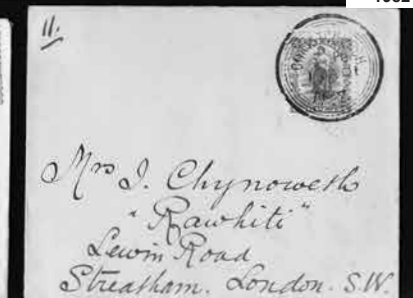 11.
Mrs J. Chynoweth
"Rawhiti"
Lewin Road
Streatham. London. S.W.